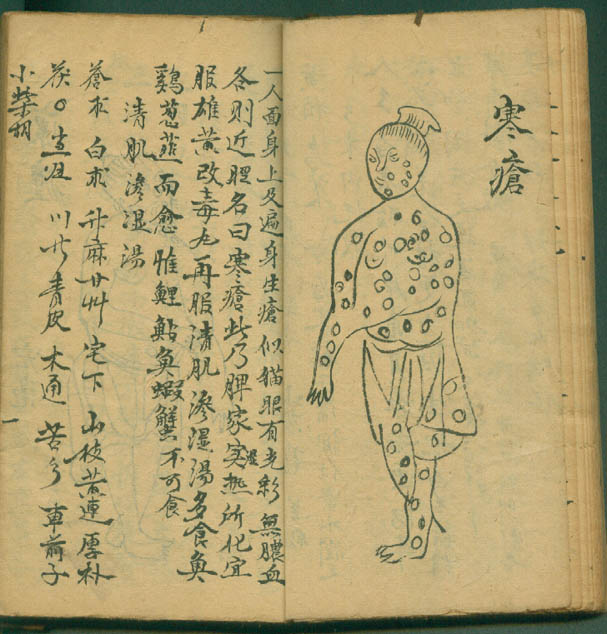 寒瘡
一人面身上及遍身生瘡似貓眼有光彩無膿血
各則近腥名曰寒瘡此乃脾家实湿热所化宜
服雄黃改毒丸再服清肌滲湿湯多食魚
鷄葱韮而愈惟鯉鮎魚蝦蟹不可食
清肌滲湿湯
蒼朮 白朮 升麻 甘艸 宅下 山枝 黃連 厚朴
茯〇 生 川 青皮 木通 苦 車前子
小柴胡